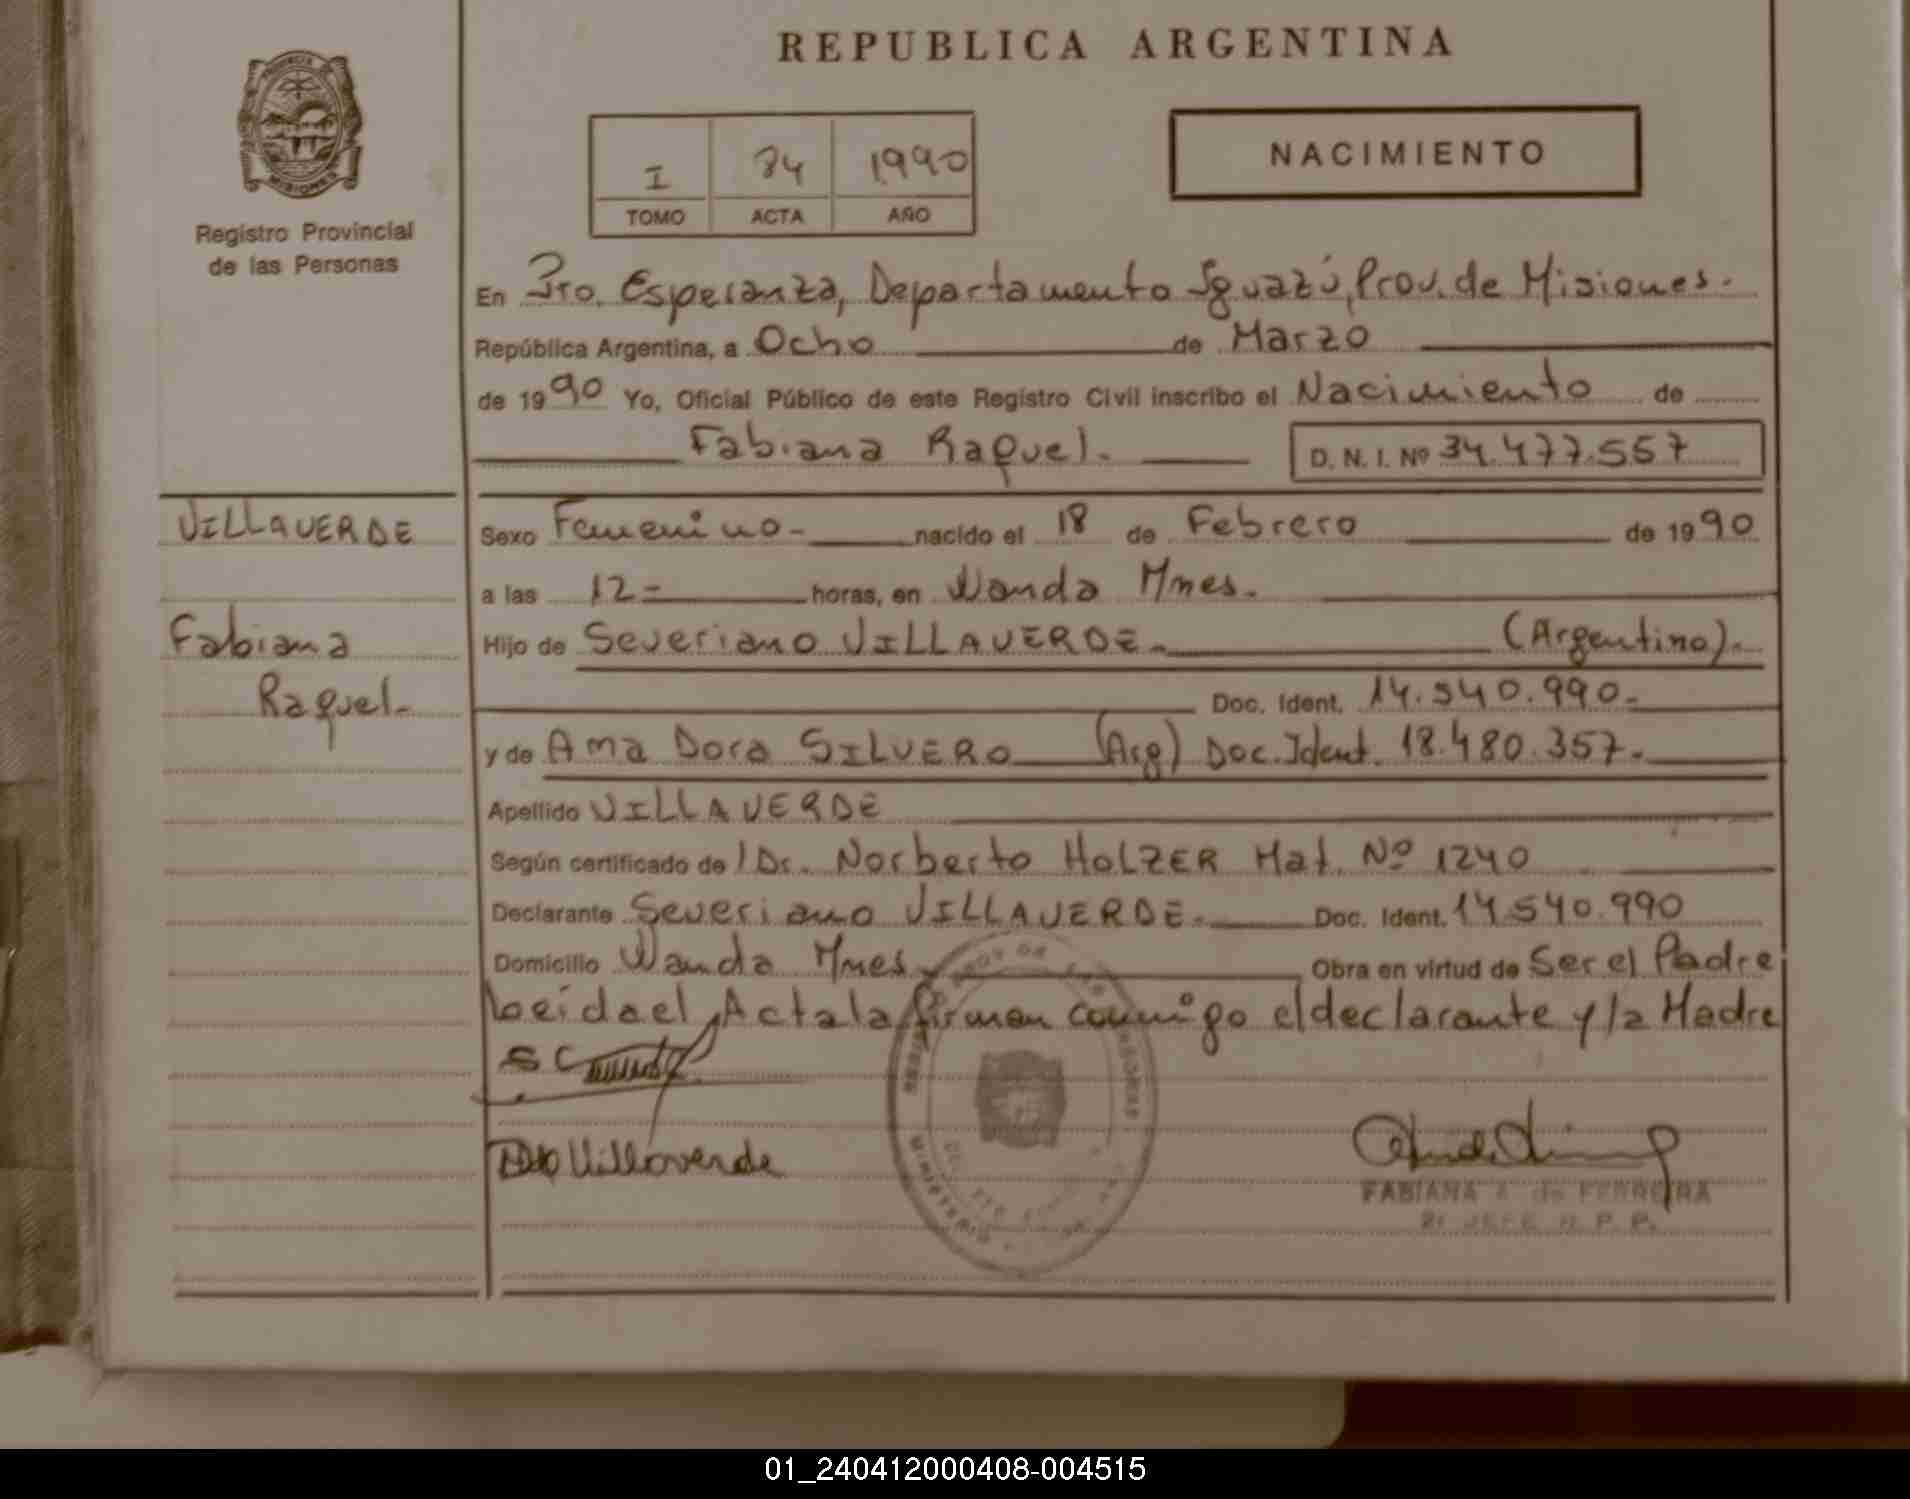 REPUBLICA ARGENTINA
PROVINCIA DE
MISIONES
Registro Provincial
de las Personas
I 84 1990
TOMO ACTA AÑO
NACIMIENTO
En Pto. Esperanza, Departamento Iguazú, Prov. de Misiones.
República Argentina, a Ocho de Marzo
de 1990 Yo, Oficial Público de este Registro Civil inscribo el Nacimiento de
Fabiana Raquel. D. N. I. Nº 34.477.557
VILLAVERDE
Fabiana
Raquel.
Sexo Femenino - nacido el 18 de Febrero de 1990
a las 12 = horas, en Wanda Mnes.
Hijo de Severiano VILLAVERDE. (Argentino).
Doc. Ident. 14.540.990.
y de Ana Dora SILVERO (Arg) Doc. Ident. 18.480.357.
Apellido VILLAVERDE
Según certificado de / Dr. Norberto HOLZER Mat. Nº 1240
Declarante Severiano VILLAVERDE. Doc. Ident. 14.540.990
Domicilio Wanda Mnes. Obra en virtud de Ser el Padre
Leida el Acta la firman conmigo el declarante y la Madre
Villaverde
FABIANA A. de FERREIRA
JEFE R. P. P.
01_240412000408-004515